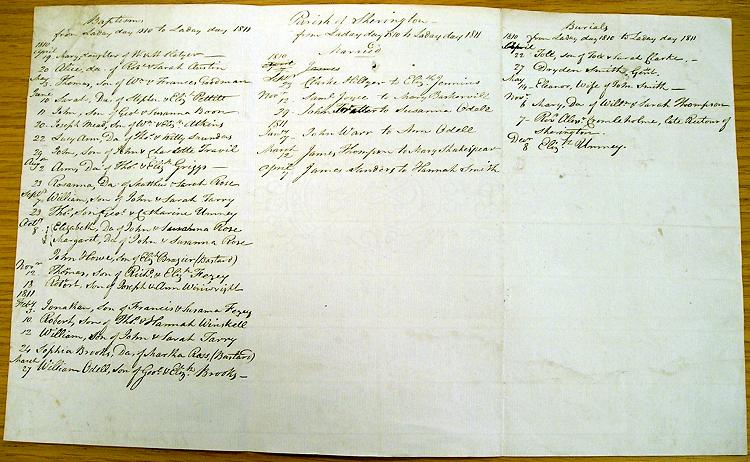 Baptisms
from Laday day 1810 to Laday day 1811
1810
April
19 Mary, daughter of Wm &
20 Alice, da of Robt & Sarah Austin
May
3 Thomas, Son of Wm & Frances Goodman
June
10 Sarah, Da of Stephn & Eliz Pettitt
11 John, Son of Geo & Susanna Boon
20 Joseph Mead, Son of Wm & Eliz Atkins
22 Lucy Ann, Da of Thos & Kitty Saundas
29 John, Son of John & Charlotte Travil
Augt
12 Ann, Da of Thos & Eliz Griggs
23 Rosanna, Da of Matthw & Sarah Rose
Sept
7 William, Son of John & Sarah Tarry
23 Thos, Son of Geo & Catharine Umney
Octr
8 Elizabeth, Da of John & Susanna Rose
Margaret, Da of John & Susanna Rose
John Howe, Son of Eliz Brazier (Bastard)
Novr
12 Thomas, Son of Richd & Eliz Foxey
18 Robert, Son of Joseph & Ann Wainwright
1811
Feby
3 Jonathan, Son of Francis & Susanna Foxey
10 Robert, Son of Thos & Hannah Winskell
12 William, Son of John & Sarah Tarry
24 Sophia Brooks, Da of Martha Rose, (Bastard)
March
27 William Odell, Son of Geo & Eliz Brooks
Parish of Sherington
from Laday day 1810 to Laday day 1811
Married
1810
James
Sept
23 Clarke Hillyer to Eliz Jennins
Novr
12 Saml Joyce to Mary Baskervill
29 John Waller to Susanna Odell
1811
Jany
7 John Warr to Ann Odell
March
12 James Thompson to Mary Shakespear
April
7 James Sanders to Hannah Smith
Burials
from Laday day 1810 to Laday day 1811
1810
April
22 Tott, Son of Tott & Sarah Clarke,
Dryden Smith, Gent
May
14 Eleanor, Wife of John Smith
Novr
6 Mary, Da of Willm & Sarah Thompson
7 Revd Alexr Cromleholme, late Rectour of
Sherington
Decr
8 Eliz Umney.